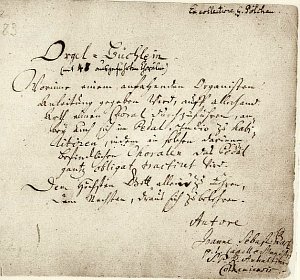 Ex collectione G. Pölchau.
83
Orgel-Büchlein
(mit 48 ausgeführten Chorälen)
Worinne einem anfahenden Organisten
Anleitung gegeben wird, auff allerhand
Arth einen Choral durchzuführen, an-
bey auch sich im Pedal studio zu habi-
litiren, indem in solchen darinne
befindlichen Choralen das Pedal
gantz obligat tractiret wird.
Dem Höchsten Gott allein zu Ehren,
Dem Nechsten, draus sich zu belehren.
Autore
Joanne Sebast: Bach
p. t. Capellæ Magistri
S. P. R. Anhaltini-
Cotheniensis.